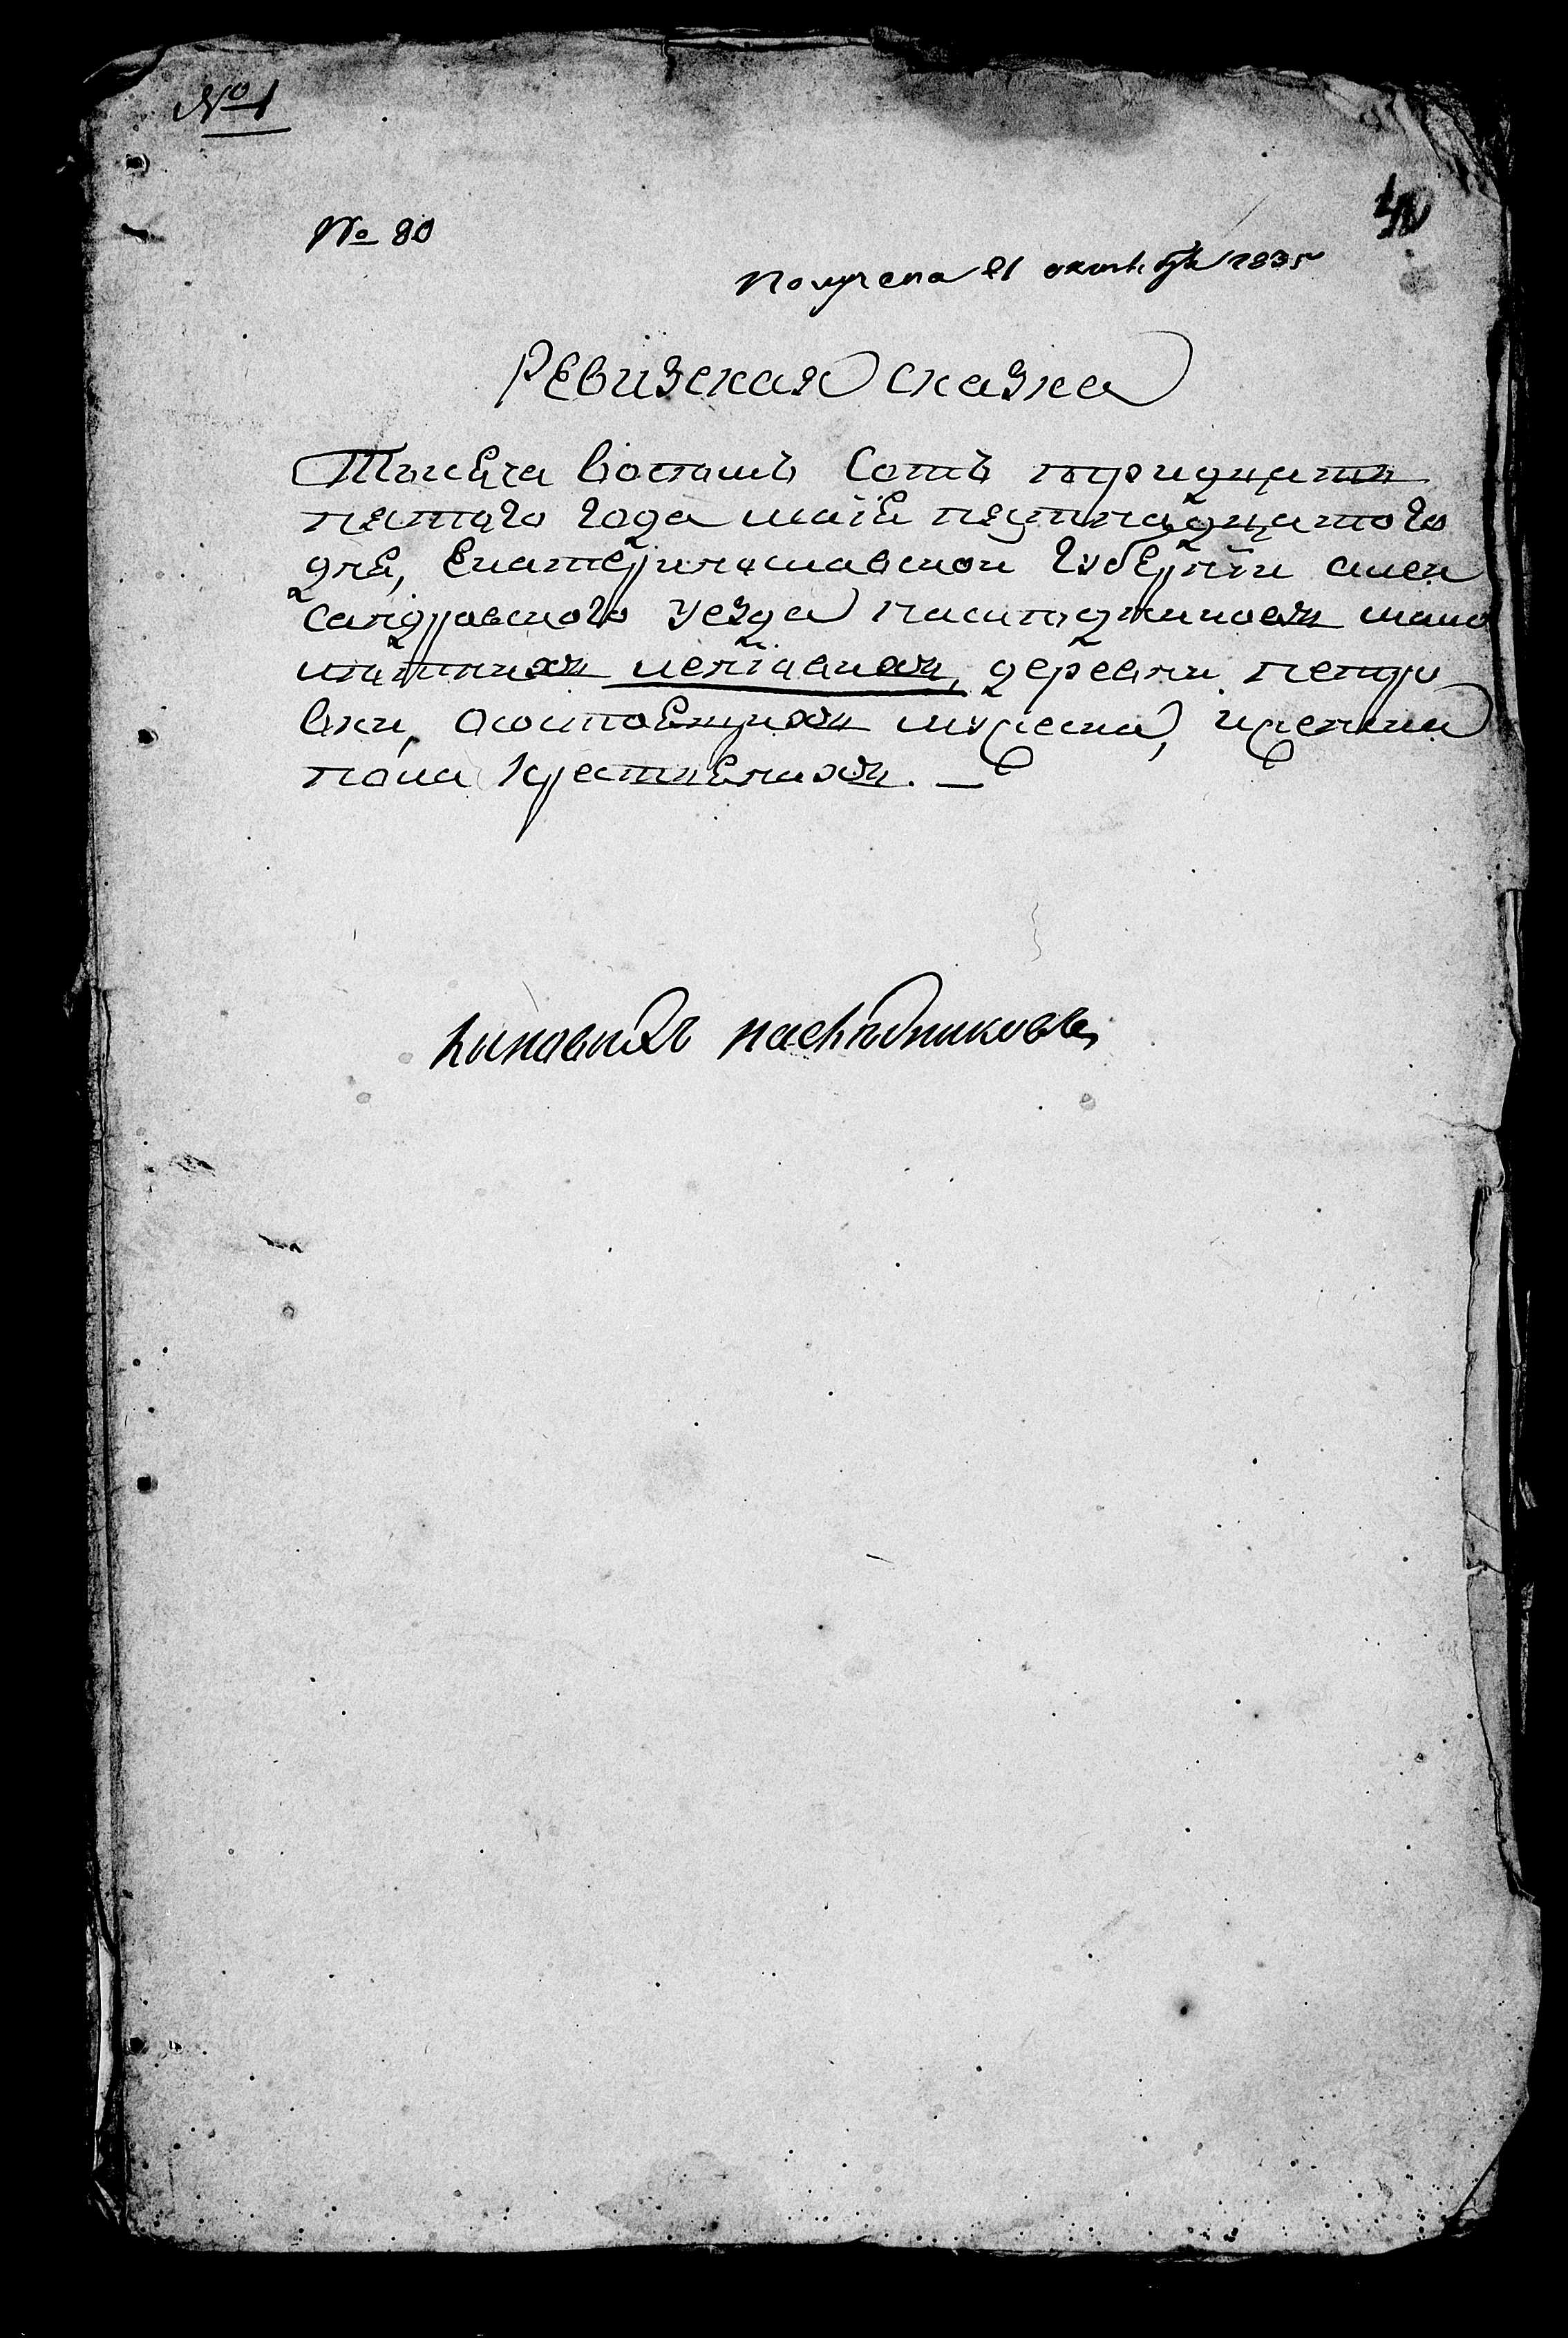 № 1
№ 80
Получена 21 октября 1835
Ревизская сказка
Тысяча восемь сотъ тридцать
пятого года маія пятнадцатого
дня, Екатеринославской губерніи алек
сандровского уезда наследниковъ мало
летнихъ деревни петро
вки, осостоящихъ мужеска, иженска
пола крестьянахъ. —
наследниковъ